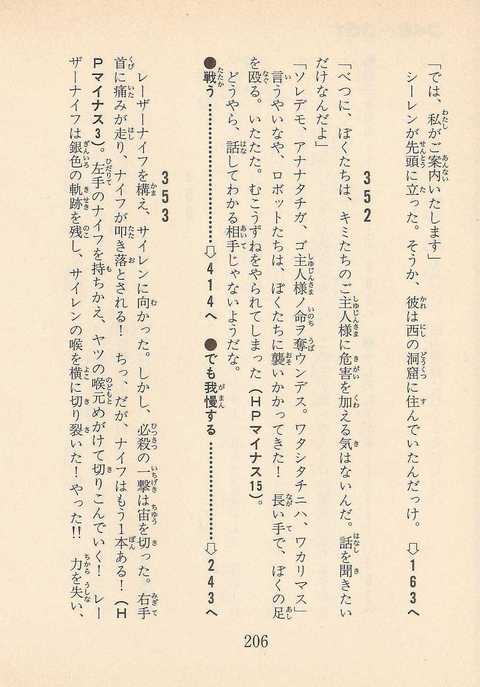 「では、私がご案内いたします」
シーレンが先頭に立った。そうか、彼は西の洞窟に住んでいたんだっけ。
⇨163へ
352
「べつに、ぼくたちは、キミたちのご主人様に危害を加える気はないんだ。話を聞きたい
だけなんだよ」
「ソレデモ、アナナタチガ、ゴ主人様ノ命ヲ奪ウンデス。ワタシタチニハ、ワカリマス」
言うやいなや、ロボットたちは、ぼくたちに襲いかかってきた！　長い手で、ぼくの足
を殴る。いたたた。むこうずねをやられてしまった（HPマイナス15）。
どうやら、話してわかる相手じゃないようだな。
●戦う…………………⇨414へ　●でも我慢する…………………⇨243へ
353
レーザーナイフを構え、サイレンに向かった。しかし、必殺の一撃は宙を切った。右手
首に痛みが走り、ナイフが叩き落とされる！　ちっ、だが、ナイフはもう1本ある！（H
Pマイナス3）。左手のナイフを持ちかえ、ヤツの喉元めがけて切りこんでいく！　レー
ザーナイフは銀色の軌跡を残し、サイレンの喉を横に切り裂いた！やった!!　力を失い、
206